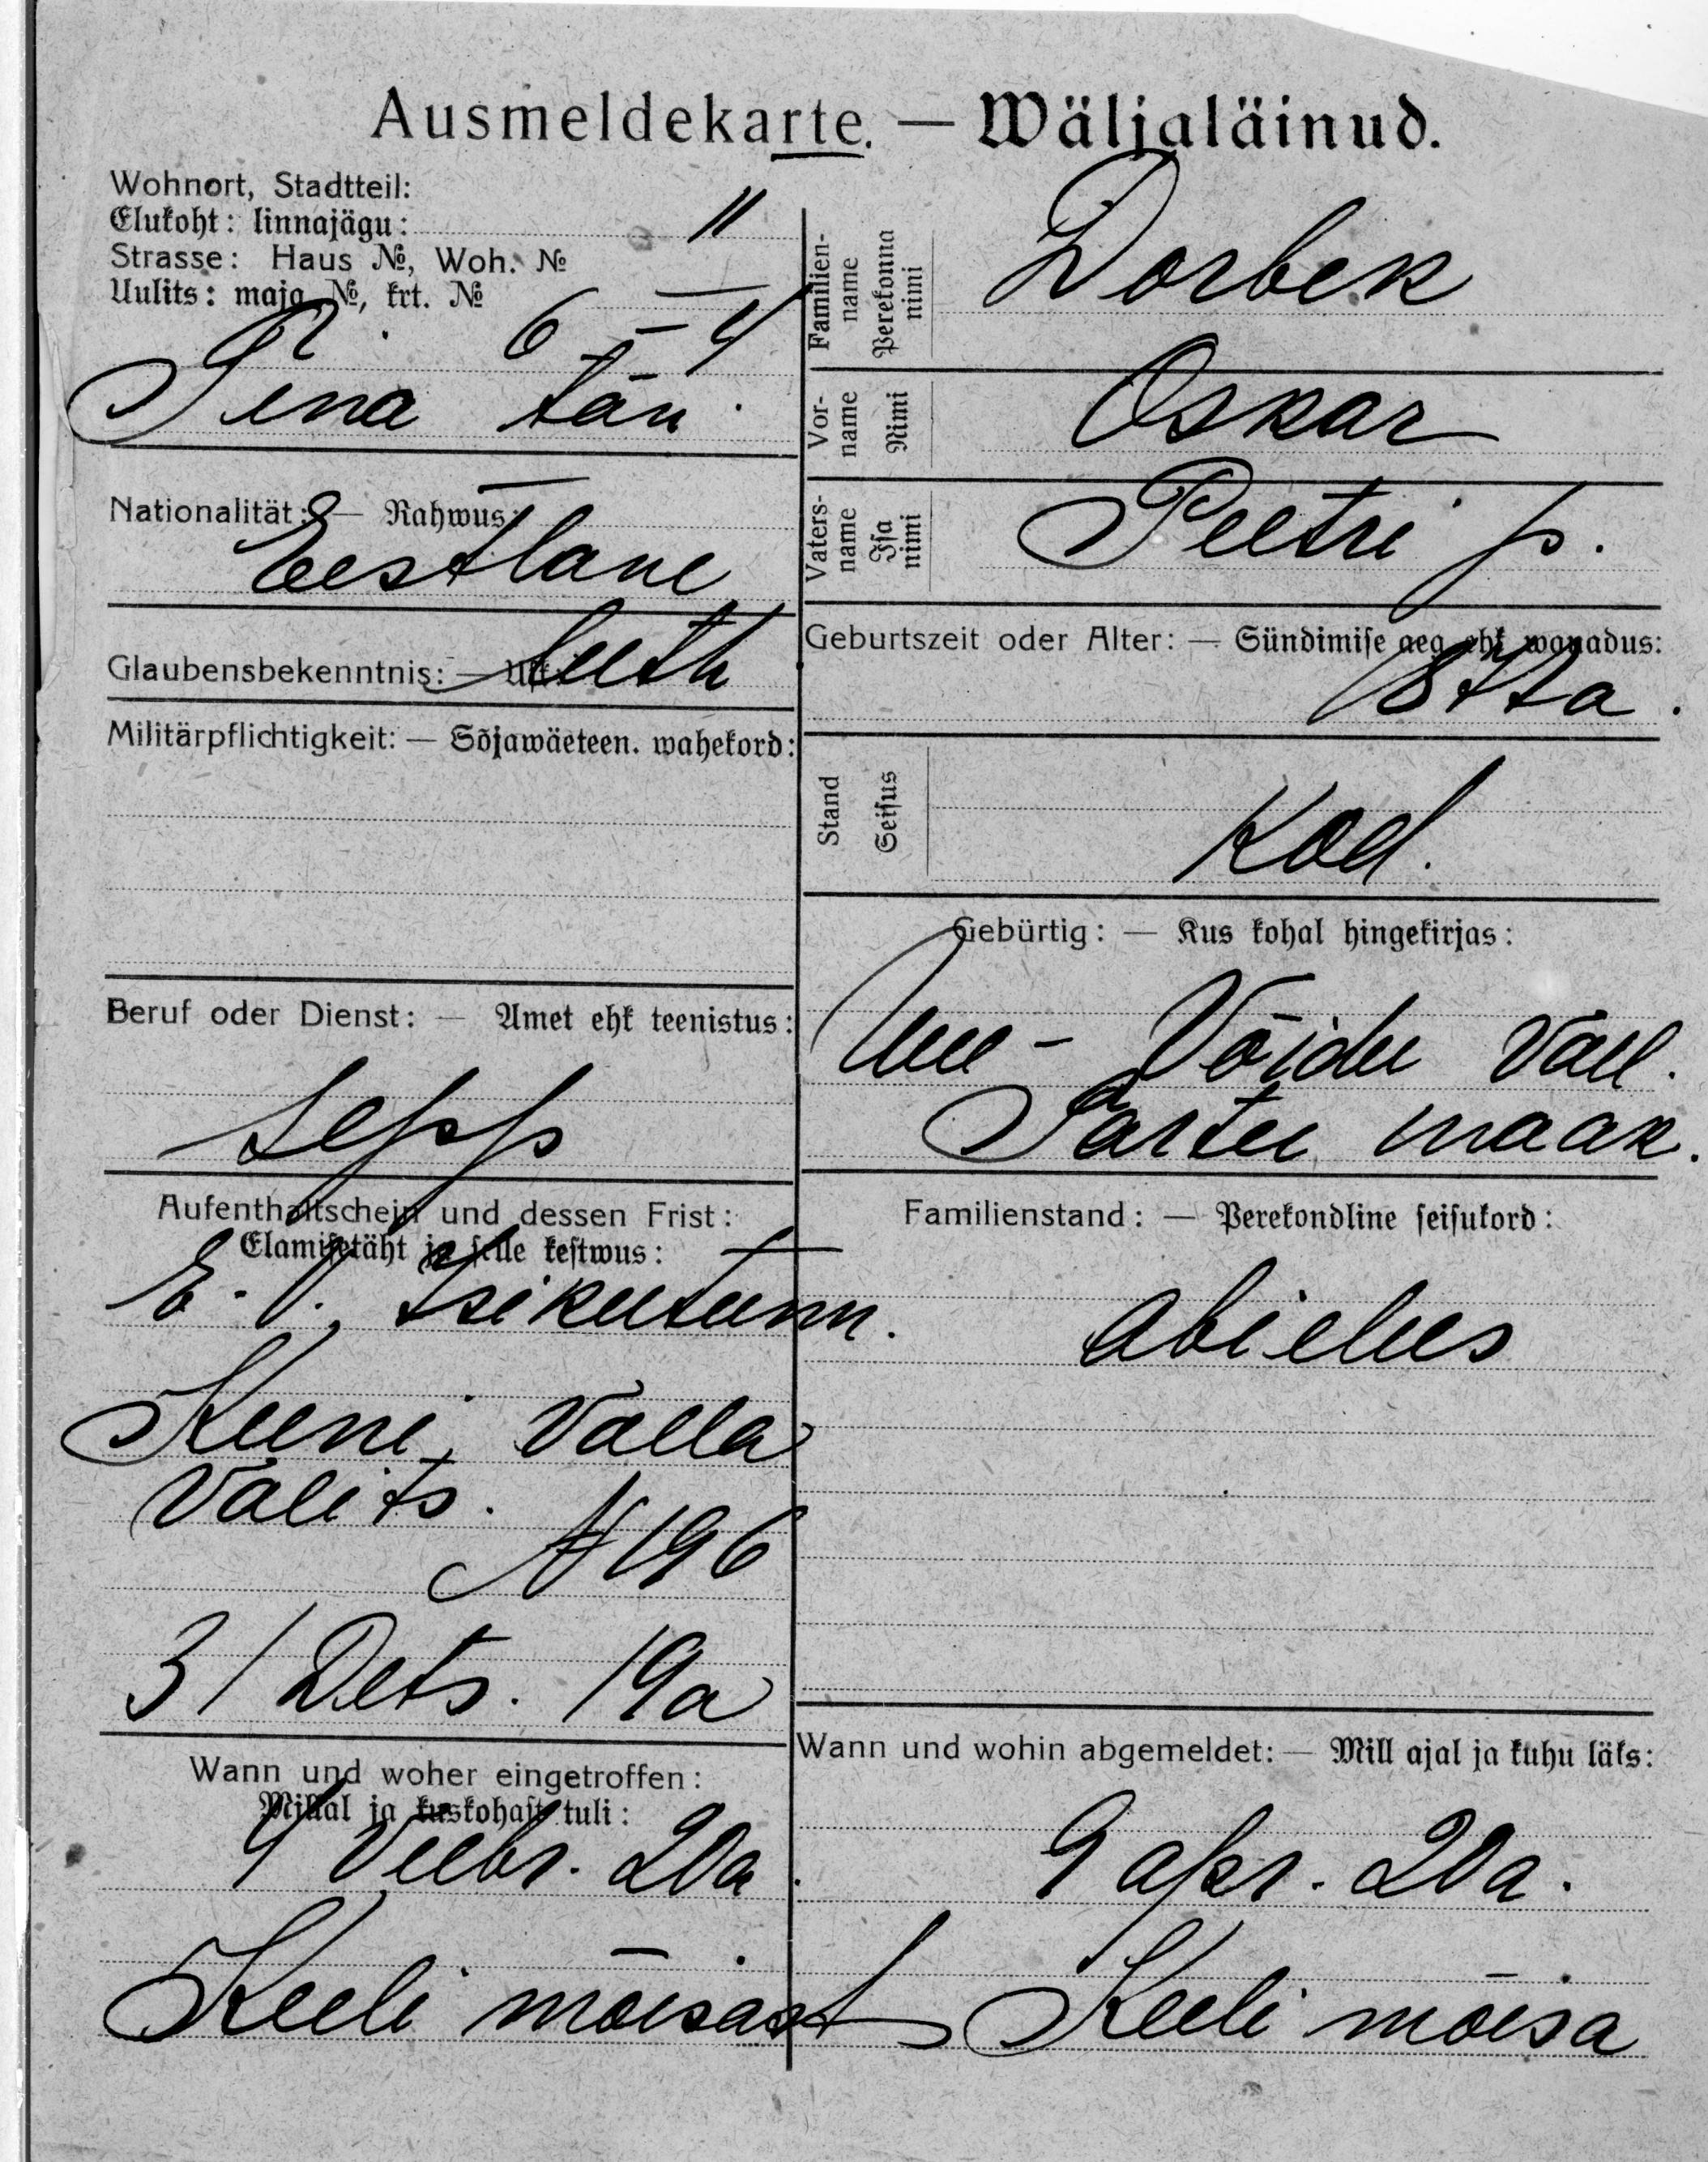 Ausmeldekarte. — Wäljaläinud.
Wohnort, Stadtteil:
Elukoht: linnajägu: II
Strasse: Haus №, Woh. №
Uulits: maja №, krt. №
6 – 4
tän.
Familien-
name
Perekonna
nimi
Dorbek
Vor-
name
Nimi
Oskar
Vaters-
name
Isa
nimi
Peetri p.
Nationalität: — Rahwus:
Eestlane
Glaubensbekenntnis: — Usk: Luth
Militärpflichtigkeit: — Sõjawäeteen. wahekord:
Beruf oder Dienst: — Amet ehk teenistus:
Sepp
Aufenthaltschein und dessen Frist:
Elamisetäht ja selle kestwus:
E. V. Isikutunn.
Valla
Valits.
N 196
31 Dets. 19a
Wann und woher eingetroffen:
Millal ja kuskohast tuli:
4 Veebr. 20a.
mõisast
Geburtszeit oder Alter: — Sündimise aeg ehk wanadus:
Stand
Seisus
Kod.
Gebürtig: — Kus kohal hingekirjas:
Uue-Võidu Vall.
maak.
Familienstand: — Perekondline seisukord:
abielus
Wann und wohin abgemeldet: — Mill ajal ja kuhu läks:
9 apr. 20a.
mõisa